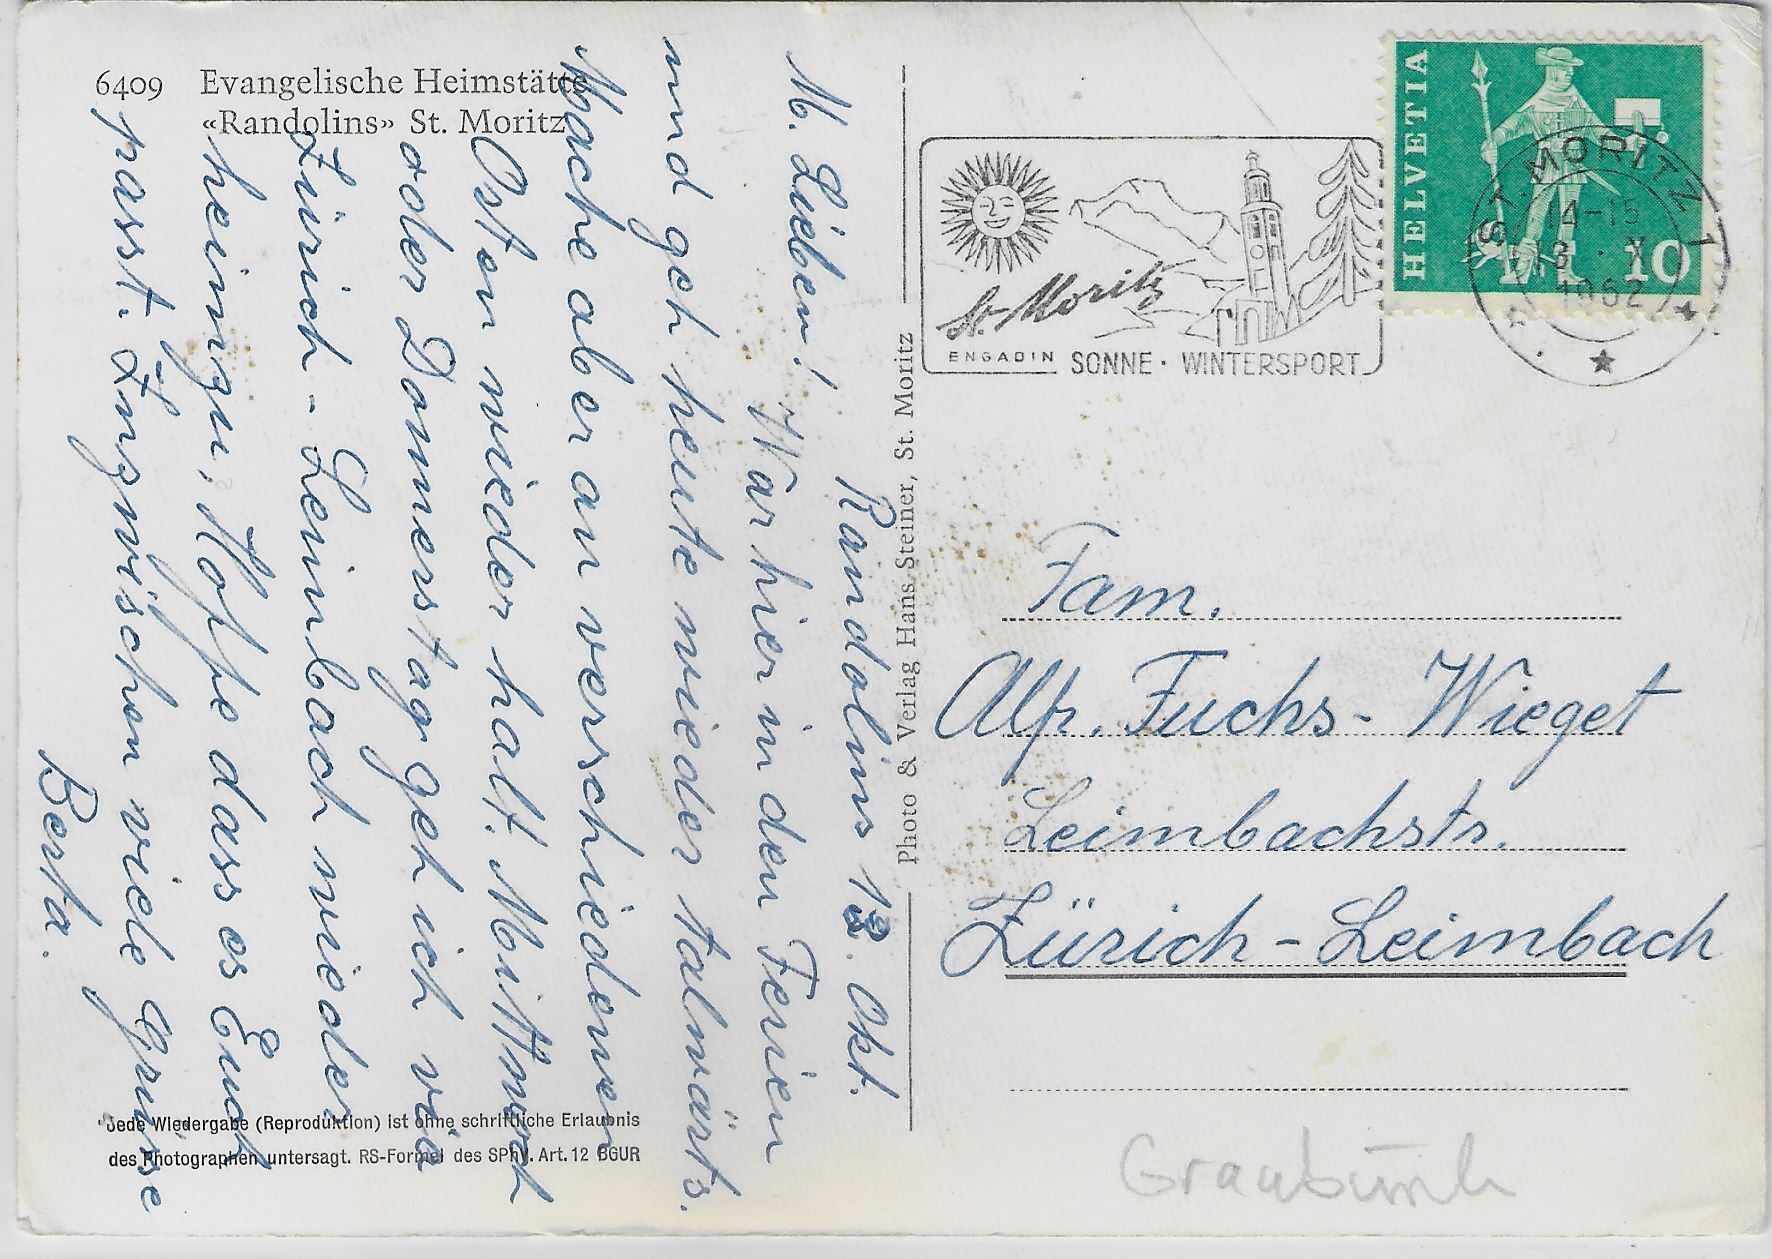 6409 Evangelische Heimstätte
«Randolins» St. Moritz
Randolins 13. Okt.
M. Lieben! War hier in den Ferien
und geh heute wieder talwärts.
Mache aber an verschiedenen
Orten wieder halt. Mittwoch
oder Donnerstag geh ich via
Zürich-Leimbach wieder
heimzu. Hoffe dass es Euch
passt. Inzwischen viele Grüsse
Berta.
Jede Wiedergabe (Reproduktion) ist ohne schriftliche Erlaubnis
des Photographen untersagt. RS-Formel des SPhV. Art. 12 BGUR
Photo & Verlag Hans Steiner, St. Moritz
St. Moritz
ENGADIN SONNE · WINTERSPORT
HELVETIA
10
ST. MORITZ 1
14-15
13. X
1962
Fam.
Alfr. Fuchs-Wieget
Leimbachstr.
Zürich-Leimbach